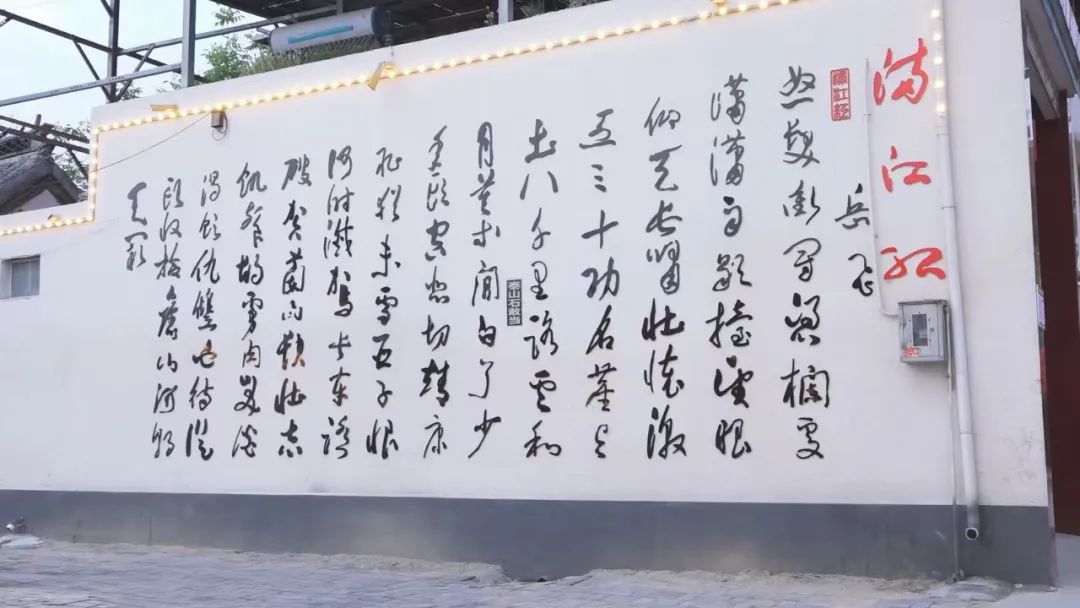 满江红
满江红
岳飞
怒发冲冠凭栏处
潇潇雨歇抬望眼
仰天长啸壮怀激
烈三十功名尘与
土八千里路云和
月莫等闲白了少
年头空悲切靖康
耻犹未雪臣子恨
何时灭驾长车踏
破贺兰山缺壮志
饥餐胡虏肉笑谈
渴饮仇雠血待从
头收拾旧山河朝
天阙
泰山石敢当